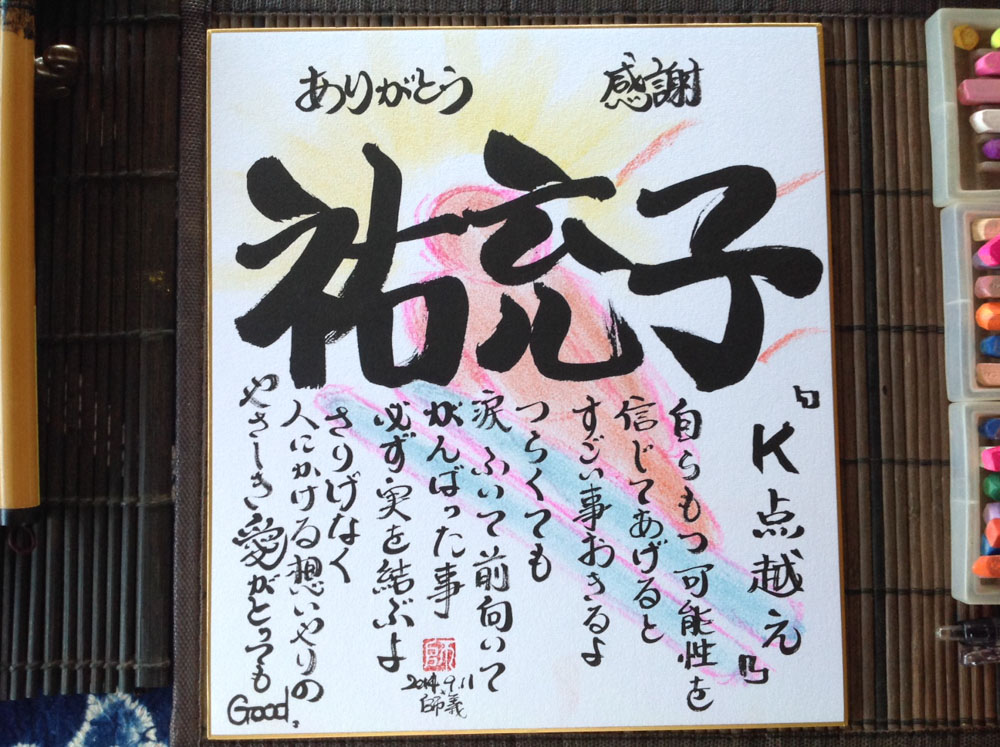 ありがとう 感謝
祐充子
『K点越え』
自らもつ可能性を
信じてあげると
すごい事おきるよ
つらくても
涙ふいて前向いて
がんばった事
必ず実を結ぶよ
さりげなく
人にかける想いやりの
やさしき愛がとっても
Good。
2014.9.11
師義